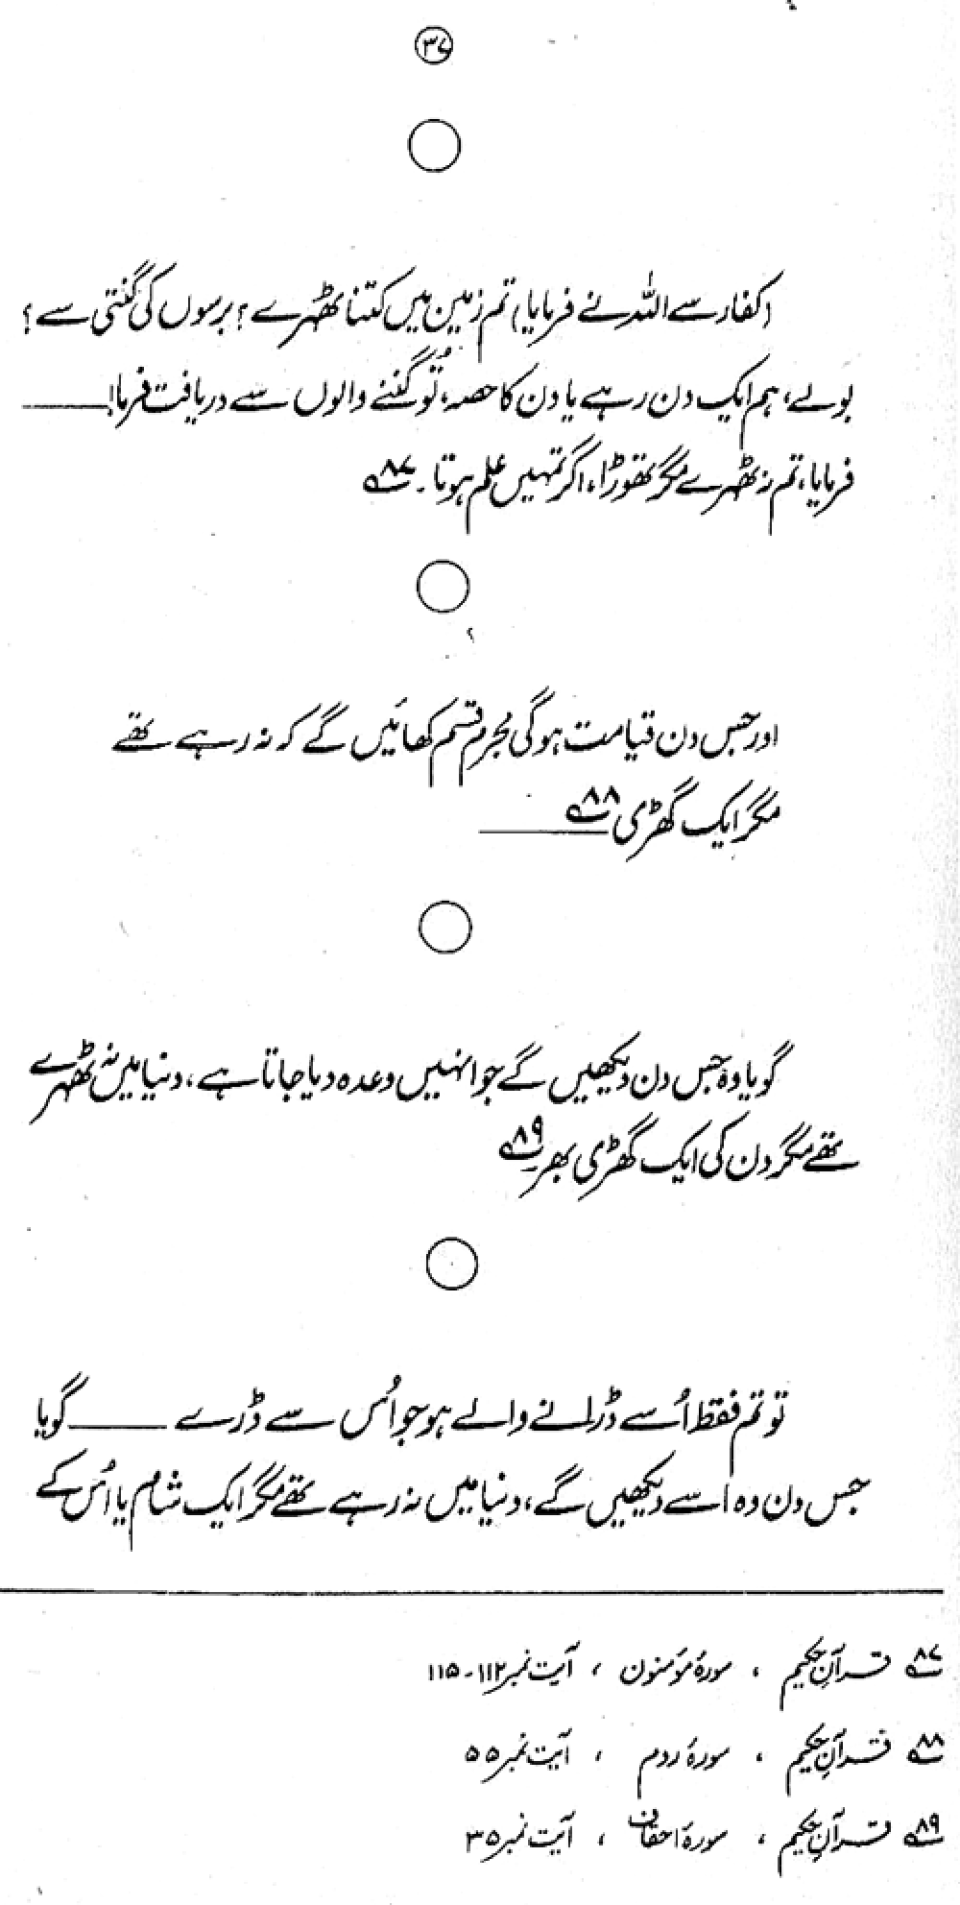 ۳۷
(کفار سے اللہ نے فرمایا) تم زمین میں کتنا ٹھہرے؟ برسوں کی گنتی سے؟
بولے، ہم ایک دن رہے یا دن کا حصہ، تُو گننے والوں سے دریافت فرما!ـــــــ
فرمایا، تم نہ ٹھہرے مگر تھوڑا، اگر تمہیں علم ہوتا۔ ۸۷
اور جس دن قیامت ہوگی مجرم قسم کھائیں گے کہ نہ رہے تھے
مگر ایک گھڑی ۸۸ ـــــــ
گویا وہ جس دن دیکھیں گے جو انہیں وعدہ دیا جاتا ہے، دنیا میں نہ ٹھہرے
تھے مگر دن کی ایک گھڑی بھر۔ ۸۹
تو تم فقط اُسے ڈرانے والے ہو جو اُس سے ڈرے ـــــــ گویا
جس دن وہ اسے دیکھیں گے، دنیا میں نہ رہے تھے مگر ایک شام یا اُس کے
۸۷ قرآن حکیم ، سورۂ مؤمنون ، آیت نمبر ۱۱۲۔۱۱۵
۸۸ قرآن حکیم ، سورۂ روم ، آیت نمبر ۵۵
۸۹ قرآن حکیم ، سورۂ احقاف ، آیت نمبر ۳۵